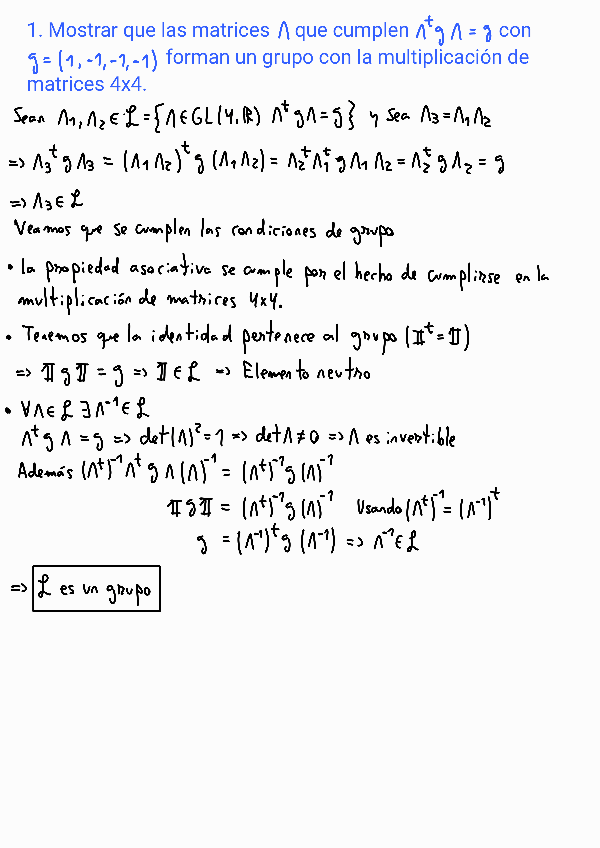 1. Mostrar que las matrices Λ que cumplen Λᵗg Λ = g con
g = (1, -1, -1, -1) forman un grupo con la multiplicación de
matrices 4x4.
Sean Λ₁, Λ₂ ∈ ℒ = {Λ ∈ GL(4, ℝ) Λᵗ g Λ = g} y sea Λ₃ = Λ₁Λ₂
=> Λ₃ᵗ g Λ₃ = (Λ₁ Λ₂)ᵗ g (Λ₁ Λ₂) = Λ₂ᵗ Λ₁ᵗ g Λ₁ Λ₂ = Λ₂ᵗ g Λ₂ = g
=> Λ₃ ∈ ℒ
Veamos que se cumplen las condiciones de grupo
• La propiedad asociativa se cumple por el hecho de cumplirse en la
multiplicación de matrices 4x4.
• Tenemos que la identidad pertenece al grupo (𝕀ᵗ = 𝕀)
=> 𝕀 g 𝕀 = g => 𝕀 ∈ ℒ => Elemento neutro
• ∀Λ ∈ ℒ ∃ Λ⁻¹ ∈ ℒ
Λᵗ g Λ = g => det(Λ)² = 1 => det Λ ≠ 0 => Λ es invertible
Además (Λᵗ)⁻¹ Λᵗ g Λ (Λ)⁻¹ = (Λᵗ)⁻¹ g (Λ)⁻¹
𝕀 g 𝕀 = (Λᵗ)⁻¹ g (Λ)⁻¹ Usando (Λᵗ)⁻¹ = (Λ⁻¹)ᵗ
g = (Λ⁻¹)ᵗ g (Λ⁻¹) => Λ⁻¹ ∈ ℒ
=> ℒ es un grupo